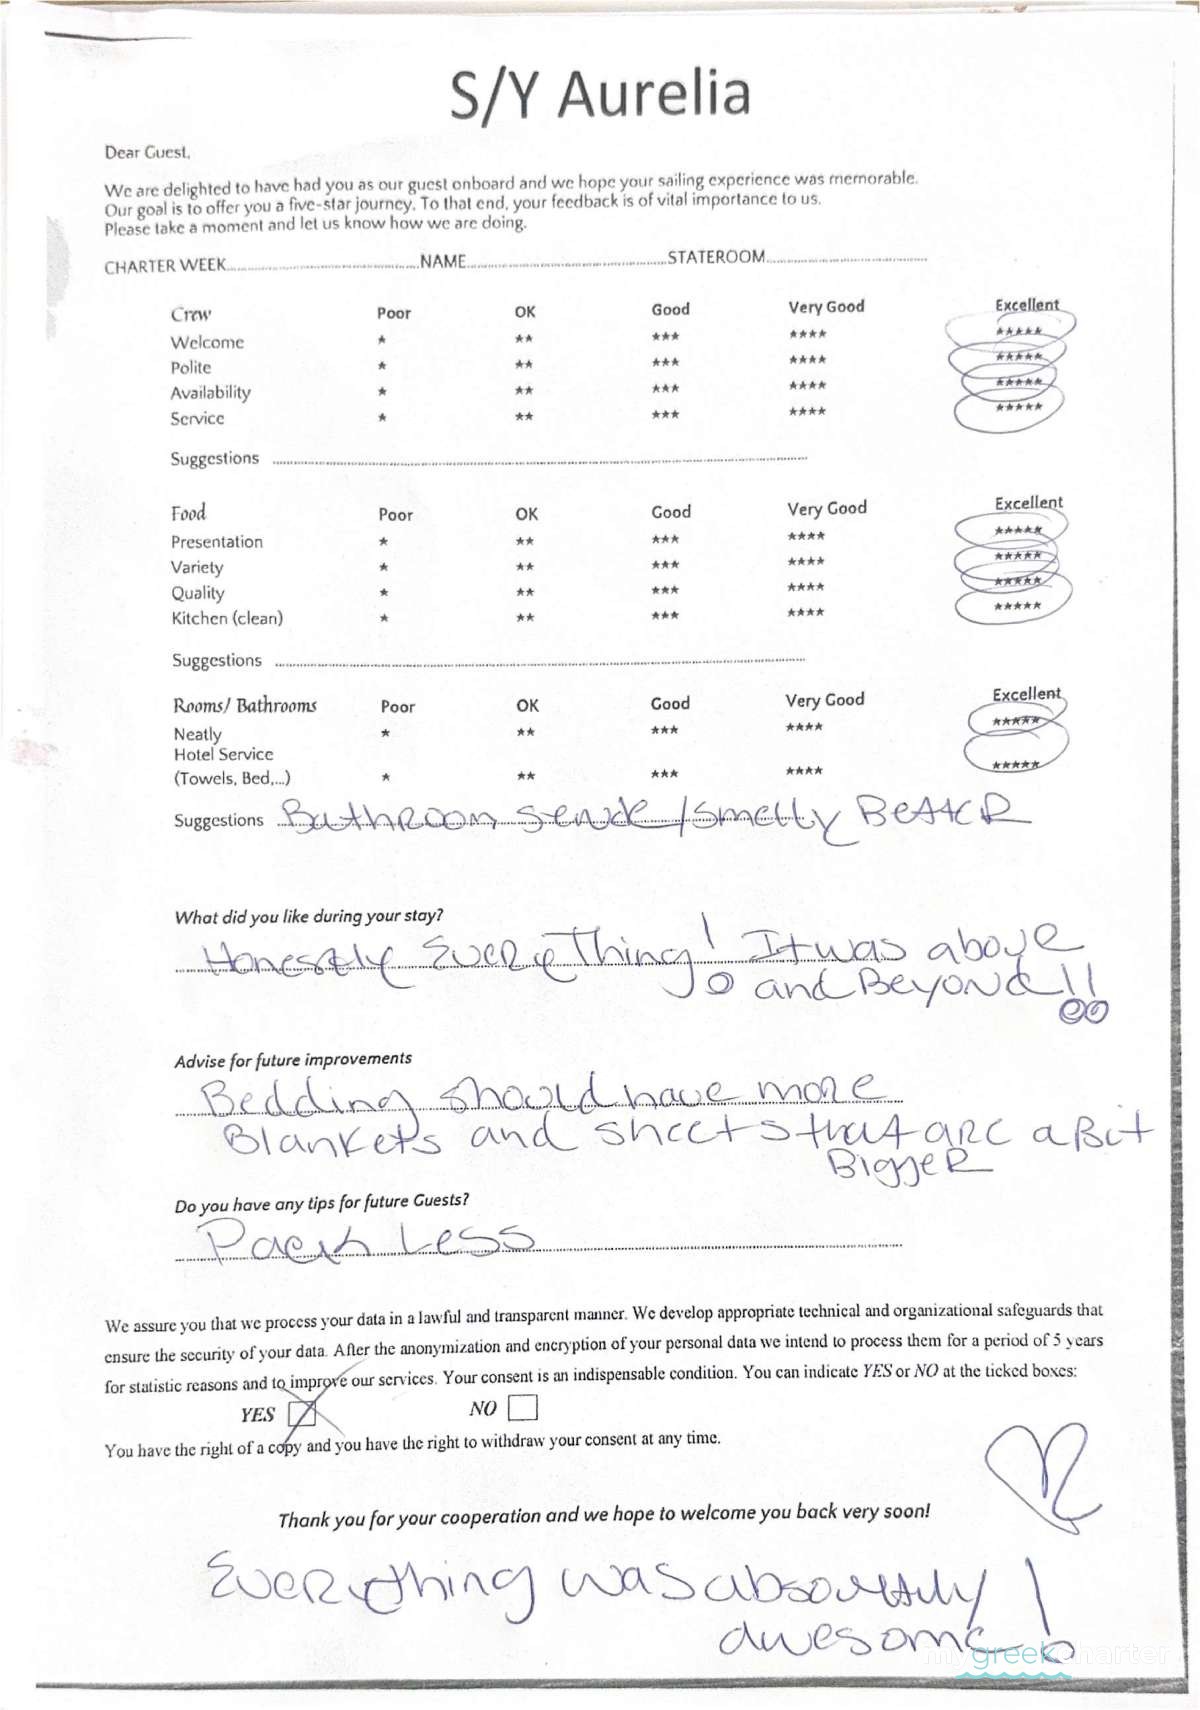 S/Y Aurelia
Dear Guest,
We are delighted to have had you as our guest onboard and we hope your sailing experience was memorable.
Our goal is to offer you a five-star journey. To that end, your feedback is of vital importance to us.
Please take a moment and let us know how we are doing.
CHARTER WEEK............NAME............STATEROOM............
Crew Poor OK Good Very Good Excellent
Welcome * ** *** **** *****
Polite * ** *** **** *****
Availability * ** *** **** *****
Service * ** *** **** *****
Suggestions ............
Food Poor OK Good Very Good Excellent
Presentation * ** *** **** *****
Variety * ** *** **** *****
Quality * ** *** **** *****
Kitchen (clean) * ** *** **** *****
Suggestions ............
Rooms/ Bathrooms Poor OK Good Very Good Excellent
Neatly * ** *** **** *****
Hotel Service
(Towels, Bed,...) * ** *** **** *****
Suggestions Bathroom /smelly Better
What did you like during your stay?
Honestly Everything! It was above
and Beyond!!
Advise for future improvements
Bedding should have more
Blankets and sheets that are a Bit
Bigger
Do you have any tips for future Guests?
Pack Less
We assure you that we process your data in a lawful and transparent manner. We develop appropriate technical and organizational safeguards that
ensure the security of your data. After the anonymization and encryption of your personal data we intend to process them for a period of 5 years
for statistic reasons and to improve our services. Your consent is an indispensable condition. You can indicate YES or NO at the ticked boxes:
YES NO
You have the right of a copy and you have the right to withdraw your consent at any time.
Thank you for your cooperation and we hope to welcome you back very soon!
Everything was absoultly
awesome!
mygreekcharter